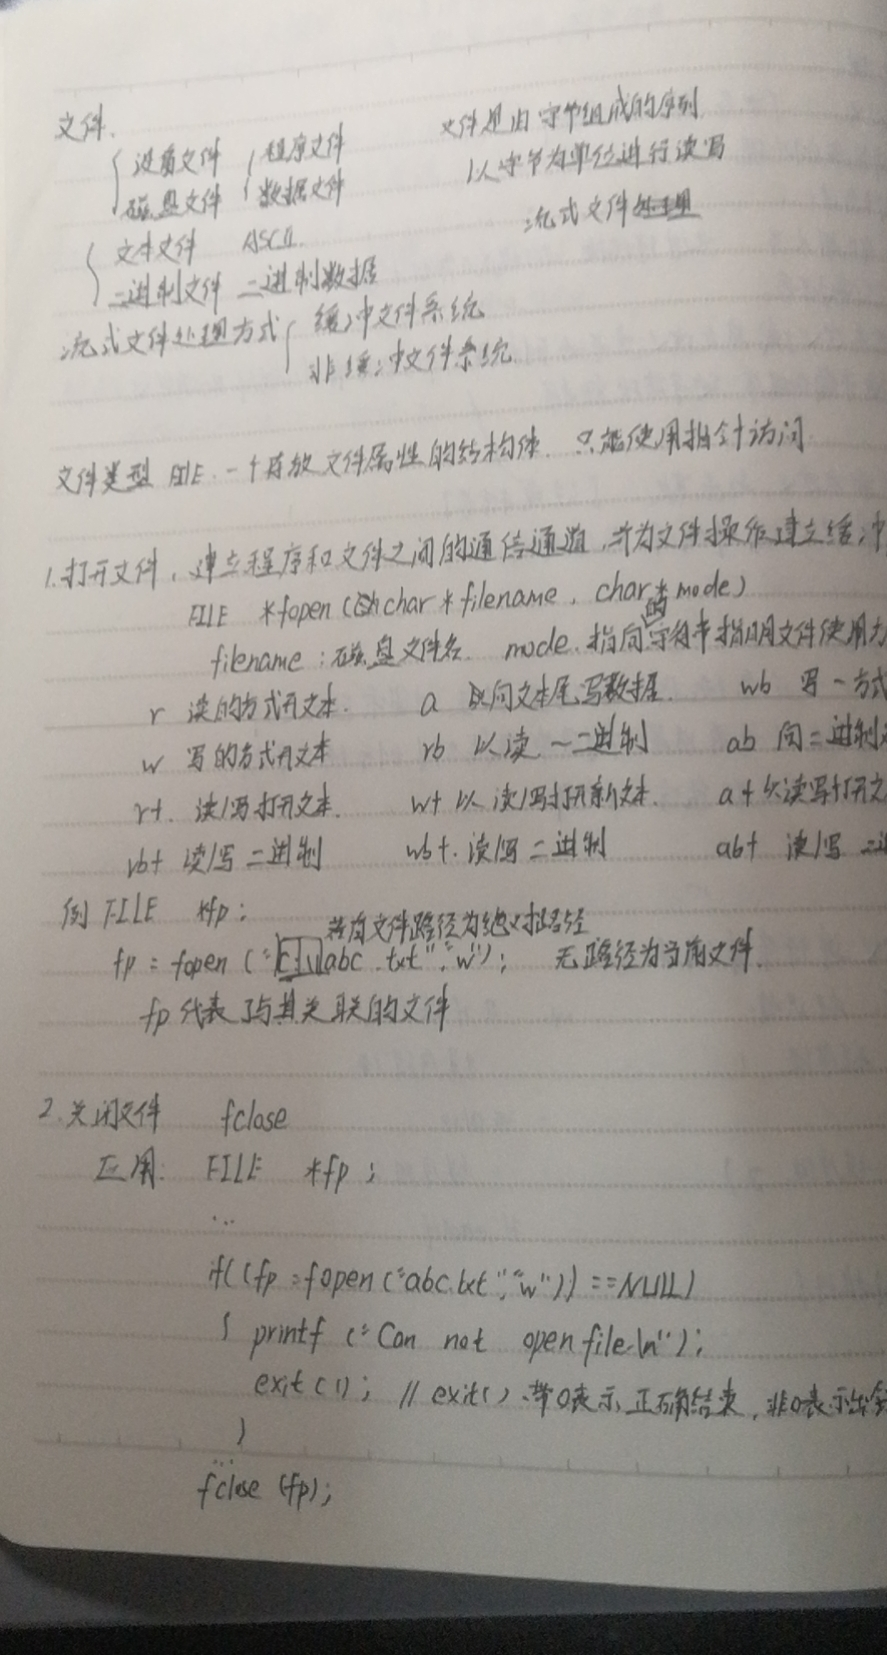 文件.
设备文件 程序文件
磁盘文件 数据文件
文件是由字节组成的序列
以字节为单位进行读写
流式文件处理
文本文件 ASCII
二进制文件 二进制数据
流式文件处理方式 缓冲文件系统
非缓冲文件系统
文件类型 FILE. 一个存放文件属性的结构体. 只能使用指针访问.
1.打开文件, 建立程序和文件之间的通信通道,并为文件操作建立缓冲
FILE *fopen (char * filename, char * mode)
filename : 磁盘文件名. mode. 指向字符串指明文件使用
r 读的方式开文本. a 向文本尾写数据. wb 写一方式
w 写的方式开文本 rb 以读一二进制 ab 向二进制
r+. 读/写打开文本. w+ 以读/写打开新文本. a+ 以读写打开文
rb+ 读/写二进制 wb+. 读/写二进制 ab+ 读/写 二进
例 FILE *fp;
若有文件路径为绝对路径
fp = fopen ("c:\\abc.txt","w"); 无路径为当前文件.
fp代表了与其关联的文件
2.关闭文件 fclose
应用: FILE *fp;
...
if((fp=fopen("abc.txt","w"))==NULL)
{ printf ("Can not open file\n");
exit(1); // exit() 带0表示正确结束, 非0表示出错
}
...
fclose (fp);